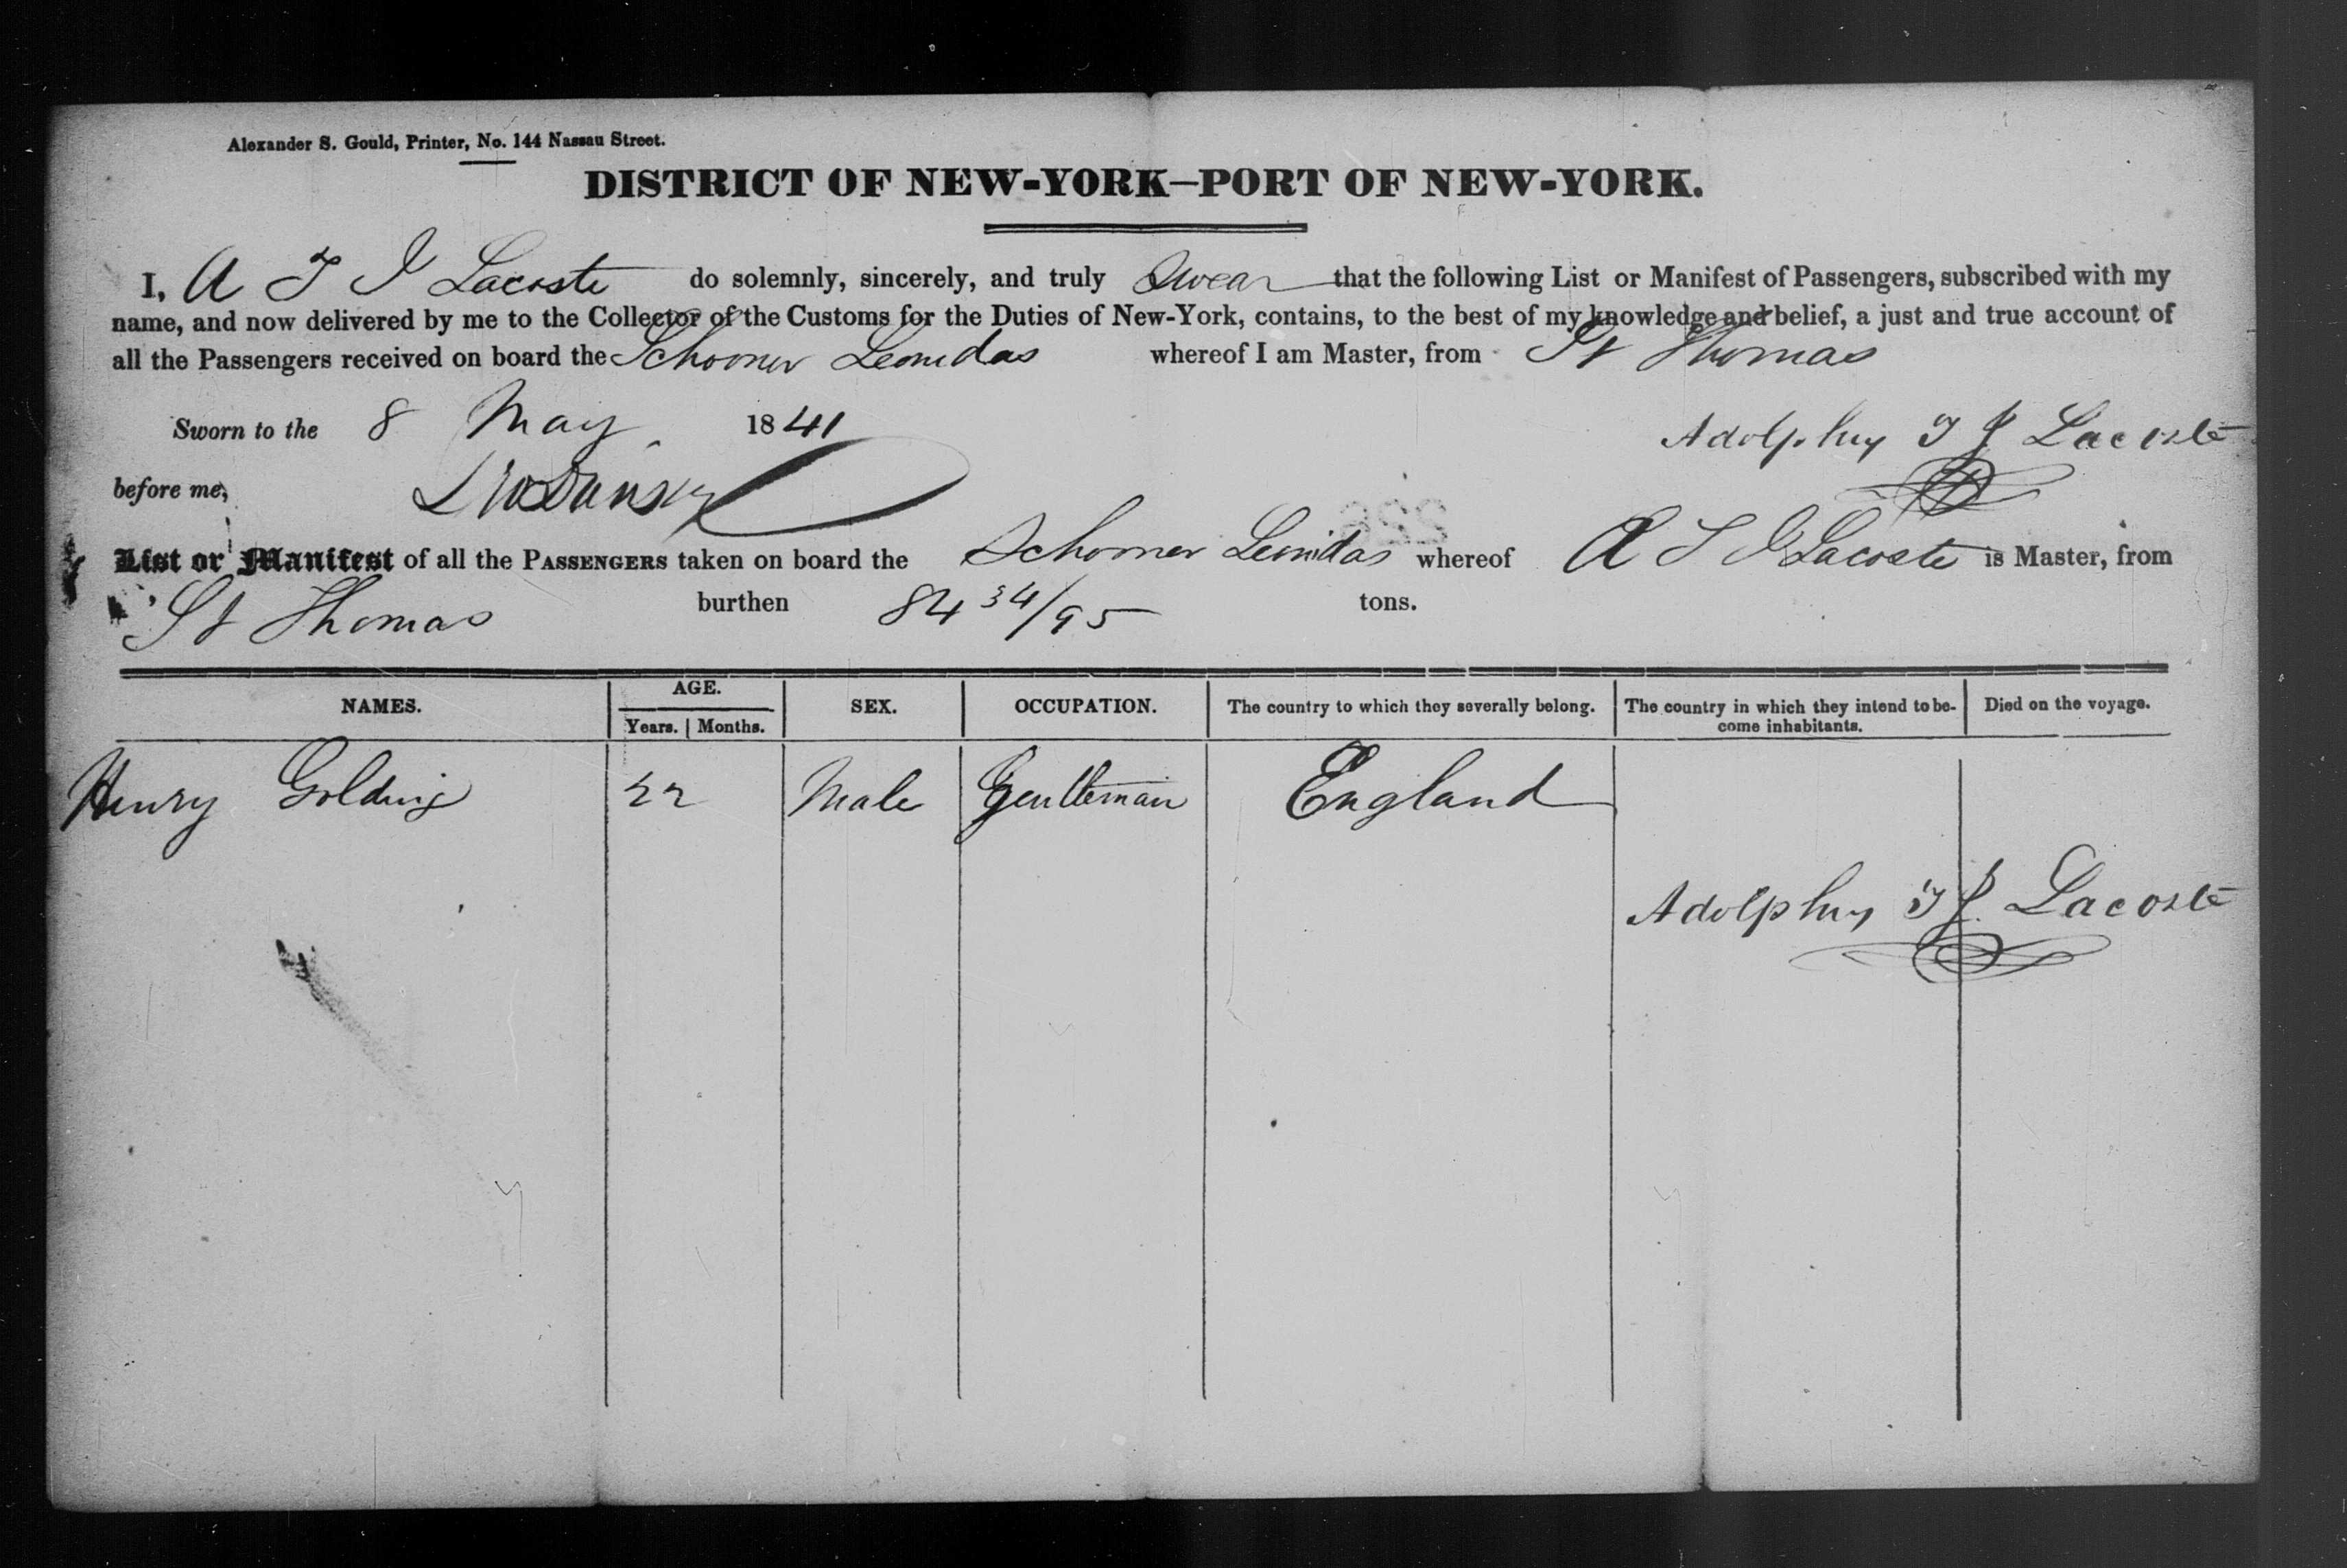 Alexander S. Gould, Printer, No. 144 Nassau Street.
DISTRICT OF NEW-YORK—PORT OF NEW-YORK.
I, A T J Lacoste do solemnly, sincerely, and truly Swear that the following List or Manifest of Passengers, subscribed with my
name, and now delivered by me to the Collector of the Customs for the Duties of New-York, contains, to the best of my knowledge and belief, a just and true account of
all the Passengers received on board the Schooner Leonidas whereof I am Master, from St Thomas
Sworn to the 8 May 1841
Adolphus T J Lacoste
before me,
List or Manifest of all the PASSENGERS taken on board the Schooner Leonidas whereof A T J Lacoste is Master, from
St Thomas burthen 84 34/95 tons.
NAMES. AGE. SEX. OCCUPATION. The country to which they severally belong. The country in which they intend to be-come inhabitants. Died on the voyage.
Years. Months.
Henry Golding 22 Male Gentleman England
Adolphus T J. Lacoste